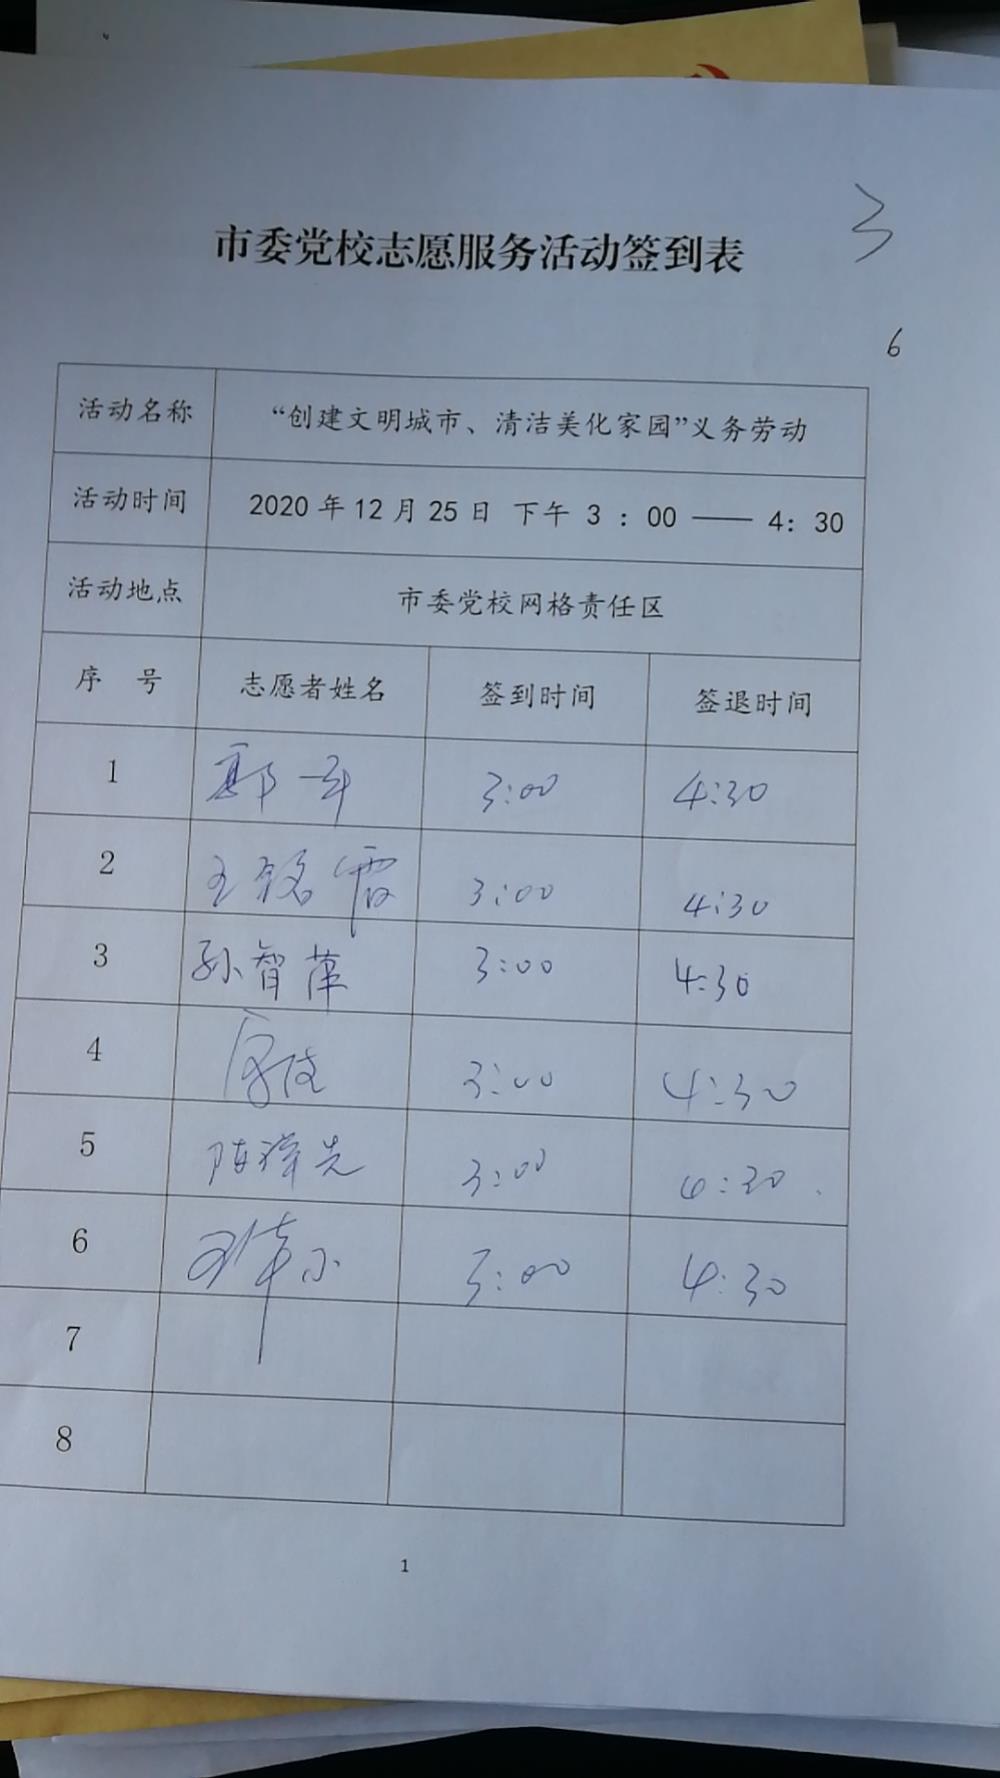 3
市委党校志愿服务活动签到表
6
活动名称 “创建文明城市、清洁美化家园”义务劳动
活动时间 2020 年 12 月 25 日 下午 3 : 00 —— 4: 30
活动地点 市委党校网格责任区
序 号 志愿者姓名 签到时间 签退时间
1 3:00 4:30
2 王铭霞 3:00 4:30
3 孙智萍 3:00 4:30
4 3:00 4:30
5 3:00 4:30
6 3:00 4:30
7
8
1